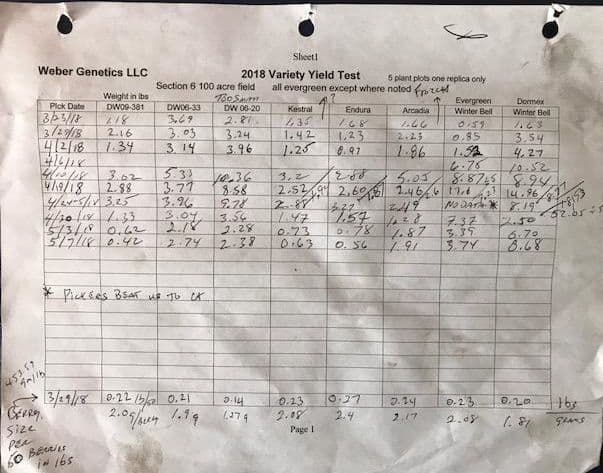 Sheet1
Weber Genetics LLC
2018 Variety Yield Test
5 plant plots one replica only
Section 6 100 acre field all evergreen except where noted
Weight in lbs Evergreen Dormex
Pick Date DW09-381 DW06-33 DW 06-20 Kestral Endura Arcadia Winter Bell Winter Bell
3/23/18 1.18 3.69 2.81 1.35 1.68 1.66 0.59 1.63
3/29/18 2.16 3.03 3.24 1.42 1.23 2.23 0.85 3.54
4/2/18 1.34 3.14 3.96 1.25 0.97 1.86 4.27
4/6/18 6.78 10.52
3.02 5.33 10.36 3.2 5.05
4/19/18 2.88 3.77 8.58 2.52 2.60 2.46 14.96
3.25 3.96 9.78 NO DATA * 8.19
1.33 3.07 3.56 1.47 1.57 7.37
5/3/18 0.62 2.28 0.73 0.78 1.87 3.39 6.70
5/7/18 0.42 2.74 2.38 0.63 0.56 1.91 3.74 6.68
* PICKERS BEAT US TO IT
453.59
gm/lb
3/29/18 0.22 0.21 0.14 0.23 0.27 0.24 0.23 0.20 lbs
BERRY 2.0g/berry 1.9g 1.27g 2.08 2.4 2.17 2.08 1.81 GRAMS
SIZE
PER
60 BERRIES
IN lbs
Page 1